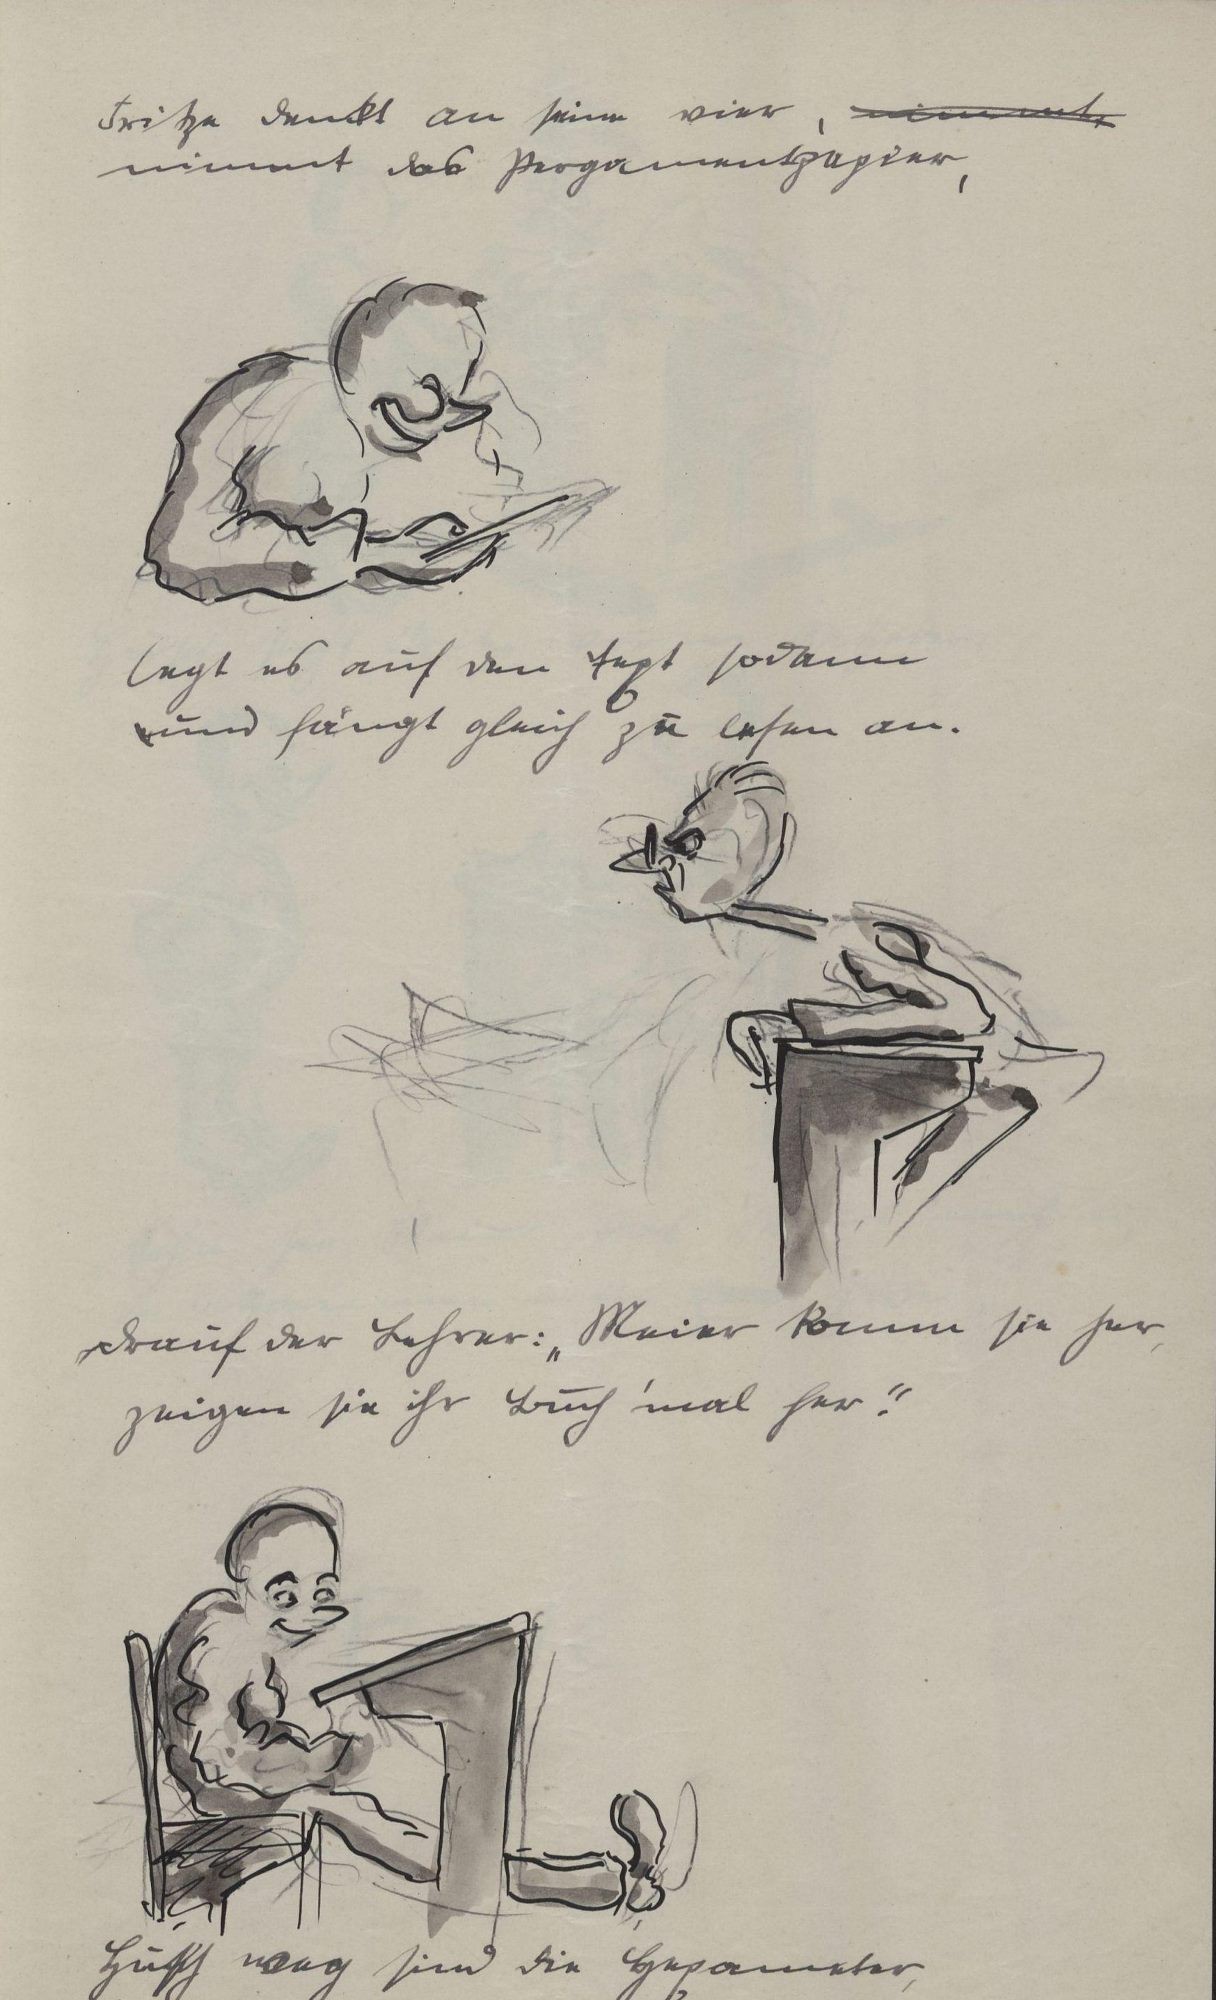 Fritze denkt an seine vier, nimmt,
nimmt das Pergamentpapier,
legt es auf den Text sodann
und fängt gleich zu lesen an.
Drauf der Lehrer: „Meier komm sie her,
zeigen sie ihr Buch 'mal her!“
Husch weg sind die Hexameter,